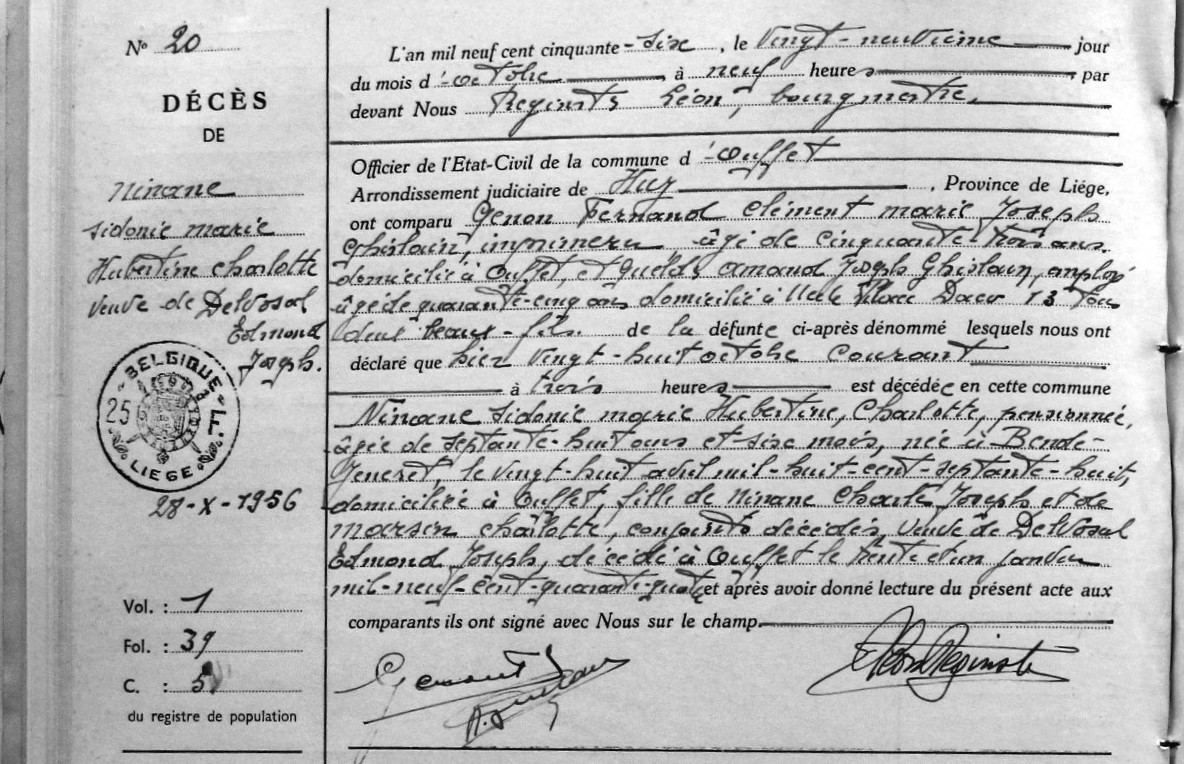 N° 20
DÉCÈS
DE
Ninane
Sidonie Marie
Hubertine Charlotte
veuve de Delvosal
Edmond
Joseph.
BELGIQUE
25 F
LIEGE
28-X-1956
Vol. : 1
Fol. : 39
C. : 5
du registre de population
L'an mil neuf cent cinquante-six, le vingt-neuvième jour
du mois d'octobre, à neuf heures par
devant Nous Reginster Léon, bourgmestre,
Officier de l'Etat-Civil de la commune d'Ouffet
Arrondissement judiciaire de Huy, Province de Liége,
ont comparu Genon Fernand Clément Marie Joseph
Ghislain, imprimeur âgé de cinquante-trois ans
domicilié à Ouffet, et Amand Joseph Ghislain, employé
âgé de quarante-cinq ans domicilié à Place 13 Tous
deux beaux-fils de la défunte ci-après dénommé lesquels nous ont
déclaré que hier vingt-huit octobre courant
à trois heures est décédée en cette commune
Ninane Sidonie Marie Hubertine, Charlotte, pensionnée,
âgée de septante-huit ans et six mois, née à Bende-
Jeneret, le vingt-huit avril mil-huit-cent-septante-huit,
domiciliée à Ouffet, fille de Ninane Charle Joseph et de
Marsin Charlotte, conjoints décédés, veuve de Delvosal
Edmond Joseph, décédé à Ouffet le trente et un janvier
mil-neuf-cent-quarante-quatre et après avoir donné lecture du présent acte aux
comparants ils ont signé avec Nous sur le champ.